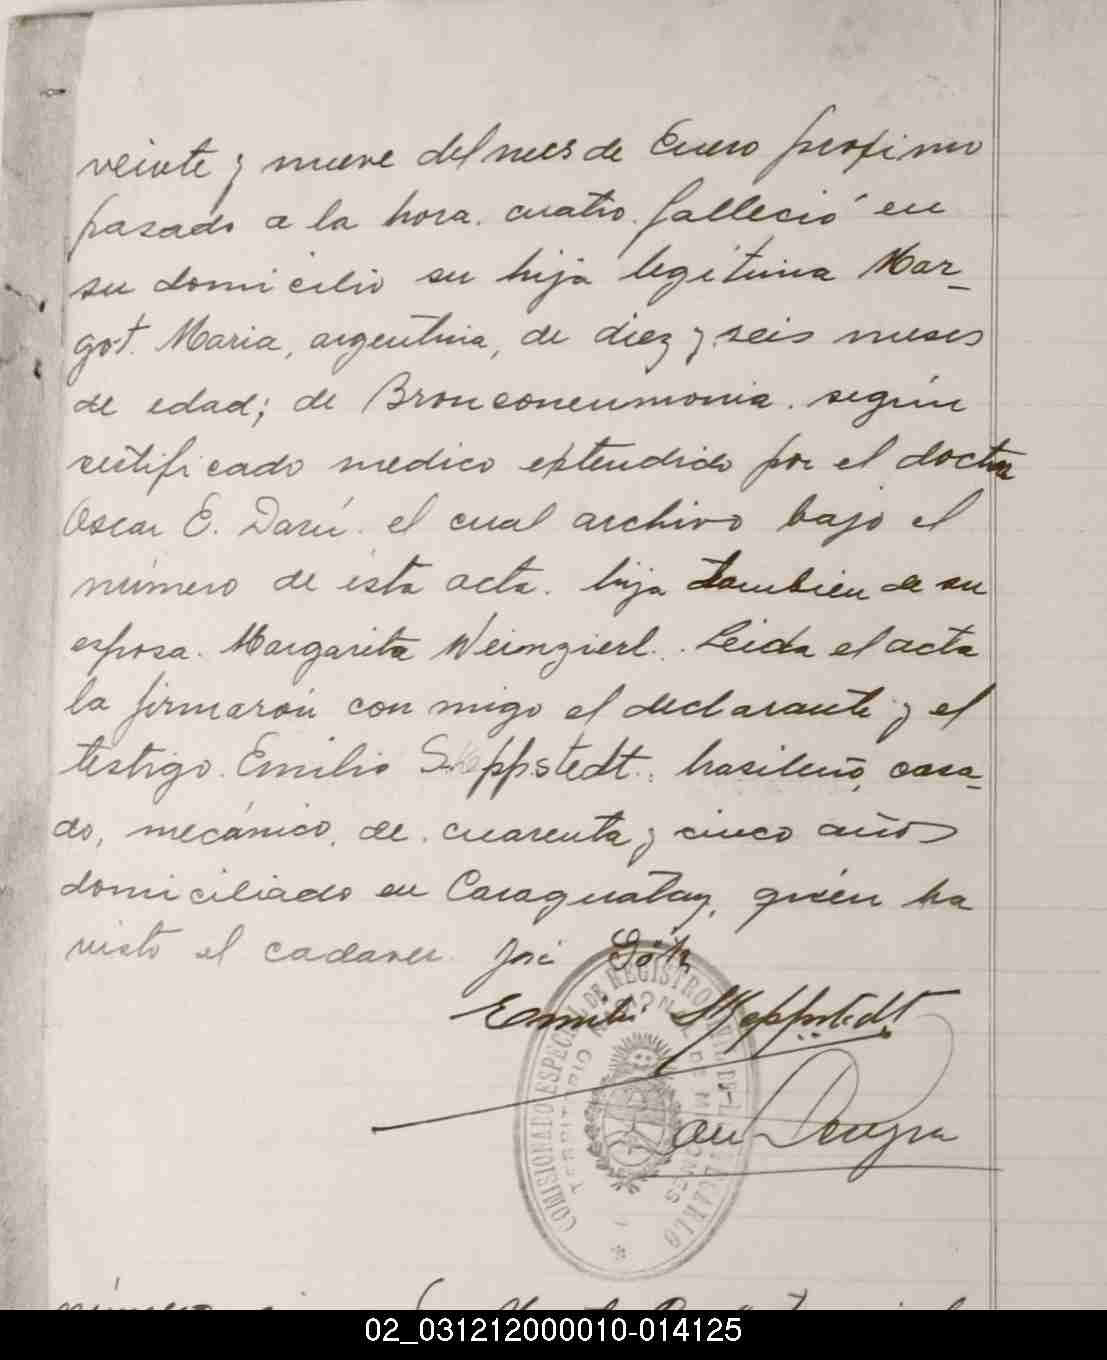 veinte y nueve del mes de Enero proximo
pasado a la hora cuatro. falleció en
su domicilio su hija legitima Mar-
got. Maria, argentina, de diez y seis meses
de edad; de Bronconeumonia. según
certificado medico extendido por el doctor
Oscar E. Darú. el cual archivo bajo el
número de ésta acta. hija tambien de su
esposa. Margarita Weinzierl. Leida el acta
la firmarón con migo el declarante y el
testigo. Emilio Skeppstedt. brasileño, casa-
do, mecánico, de. cuarenta y cinco años
domiciliado en Caraguatay, quién ha
visto el cadaver. José Götz
Emilio Skeppstedt
COMISIONADO ESPECIAL DE REGISTRO CIVIL DE
TERRITORIO NACIONAL DE MISIONES
02_031212000010-014125